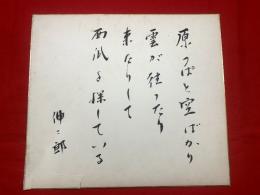 原つぱと空ばかり
雲が往つたり
来たりして
西瓜を探している
伸二郎